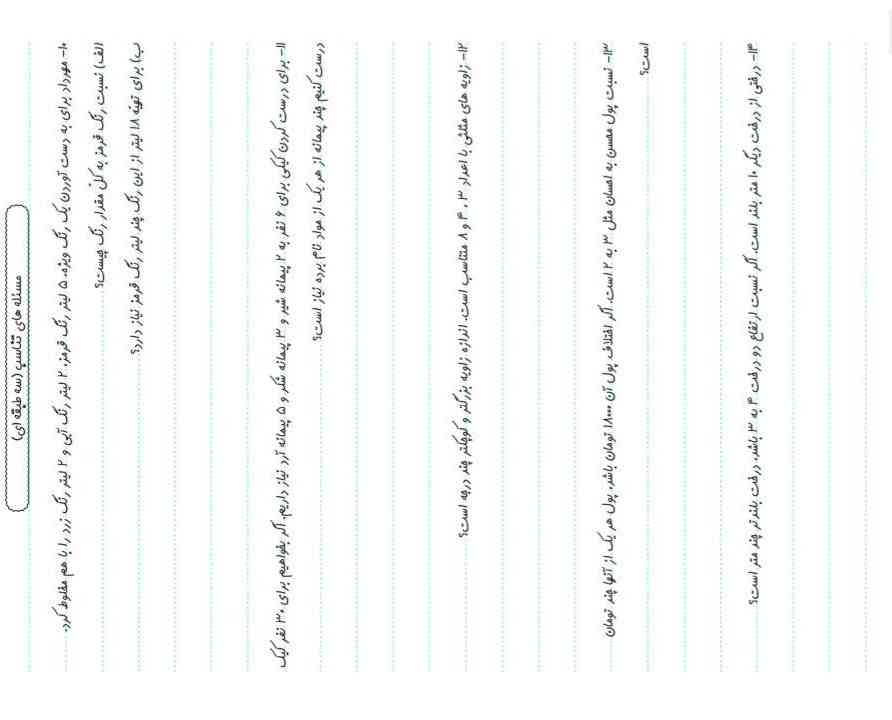 مسئله های تناسب (سه طبقه ای)
۱۰- مهرداد برای به دست آوردن یک رنگ ویژه، ۵ لیتر رنگ قرمز، ۲ لیتر رنگ آبی و ۲ لیتر رنگ زرد را با هم مخلوط کرد.
الف) نسبت رنگ قرمز به کل مقدار رنگ چیست؟
ب) برای تهیه ۱۸ لیتر از این رنگ چند لیتر رنگ قرمز نیاز دارد؟
۱۱- برای درست کردن کیکی برای ۶ نفر به ۲ پیمانه شیر و ۳ پیمانه شکر و ۵ پیمانه آرد نیاز داریم. اگر بخواهیم برای ۳۰ نفر کیک
درست کنیم چند پیمانه از هر یک از مواد نام برده نیاز است؟
۱۲- زاویه های مثلثی با اعداد ۳ ، ۴ و ۸ متناسب است. اندازه زاویه بزرگتر و کوچکتر چند درجه است؟
۱۳- نسبت پول محسن به احسان مثل ۳ به ۲ است. اگر اختلاف پول آن ۱۸۰۰۰ تومان باشد، پول هر یک از آنها چند تومان
است؟
۱۴- درختی از درخت دیگر ۱۰ متر بلند است. اگر نسبت ارتفاع دو درخت ۴ به ۳ باشد، درخت بلندتر چند متر است؟